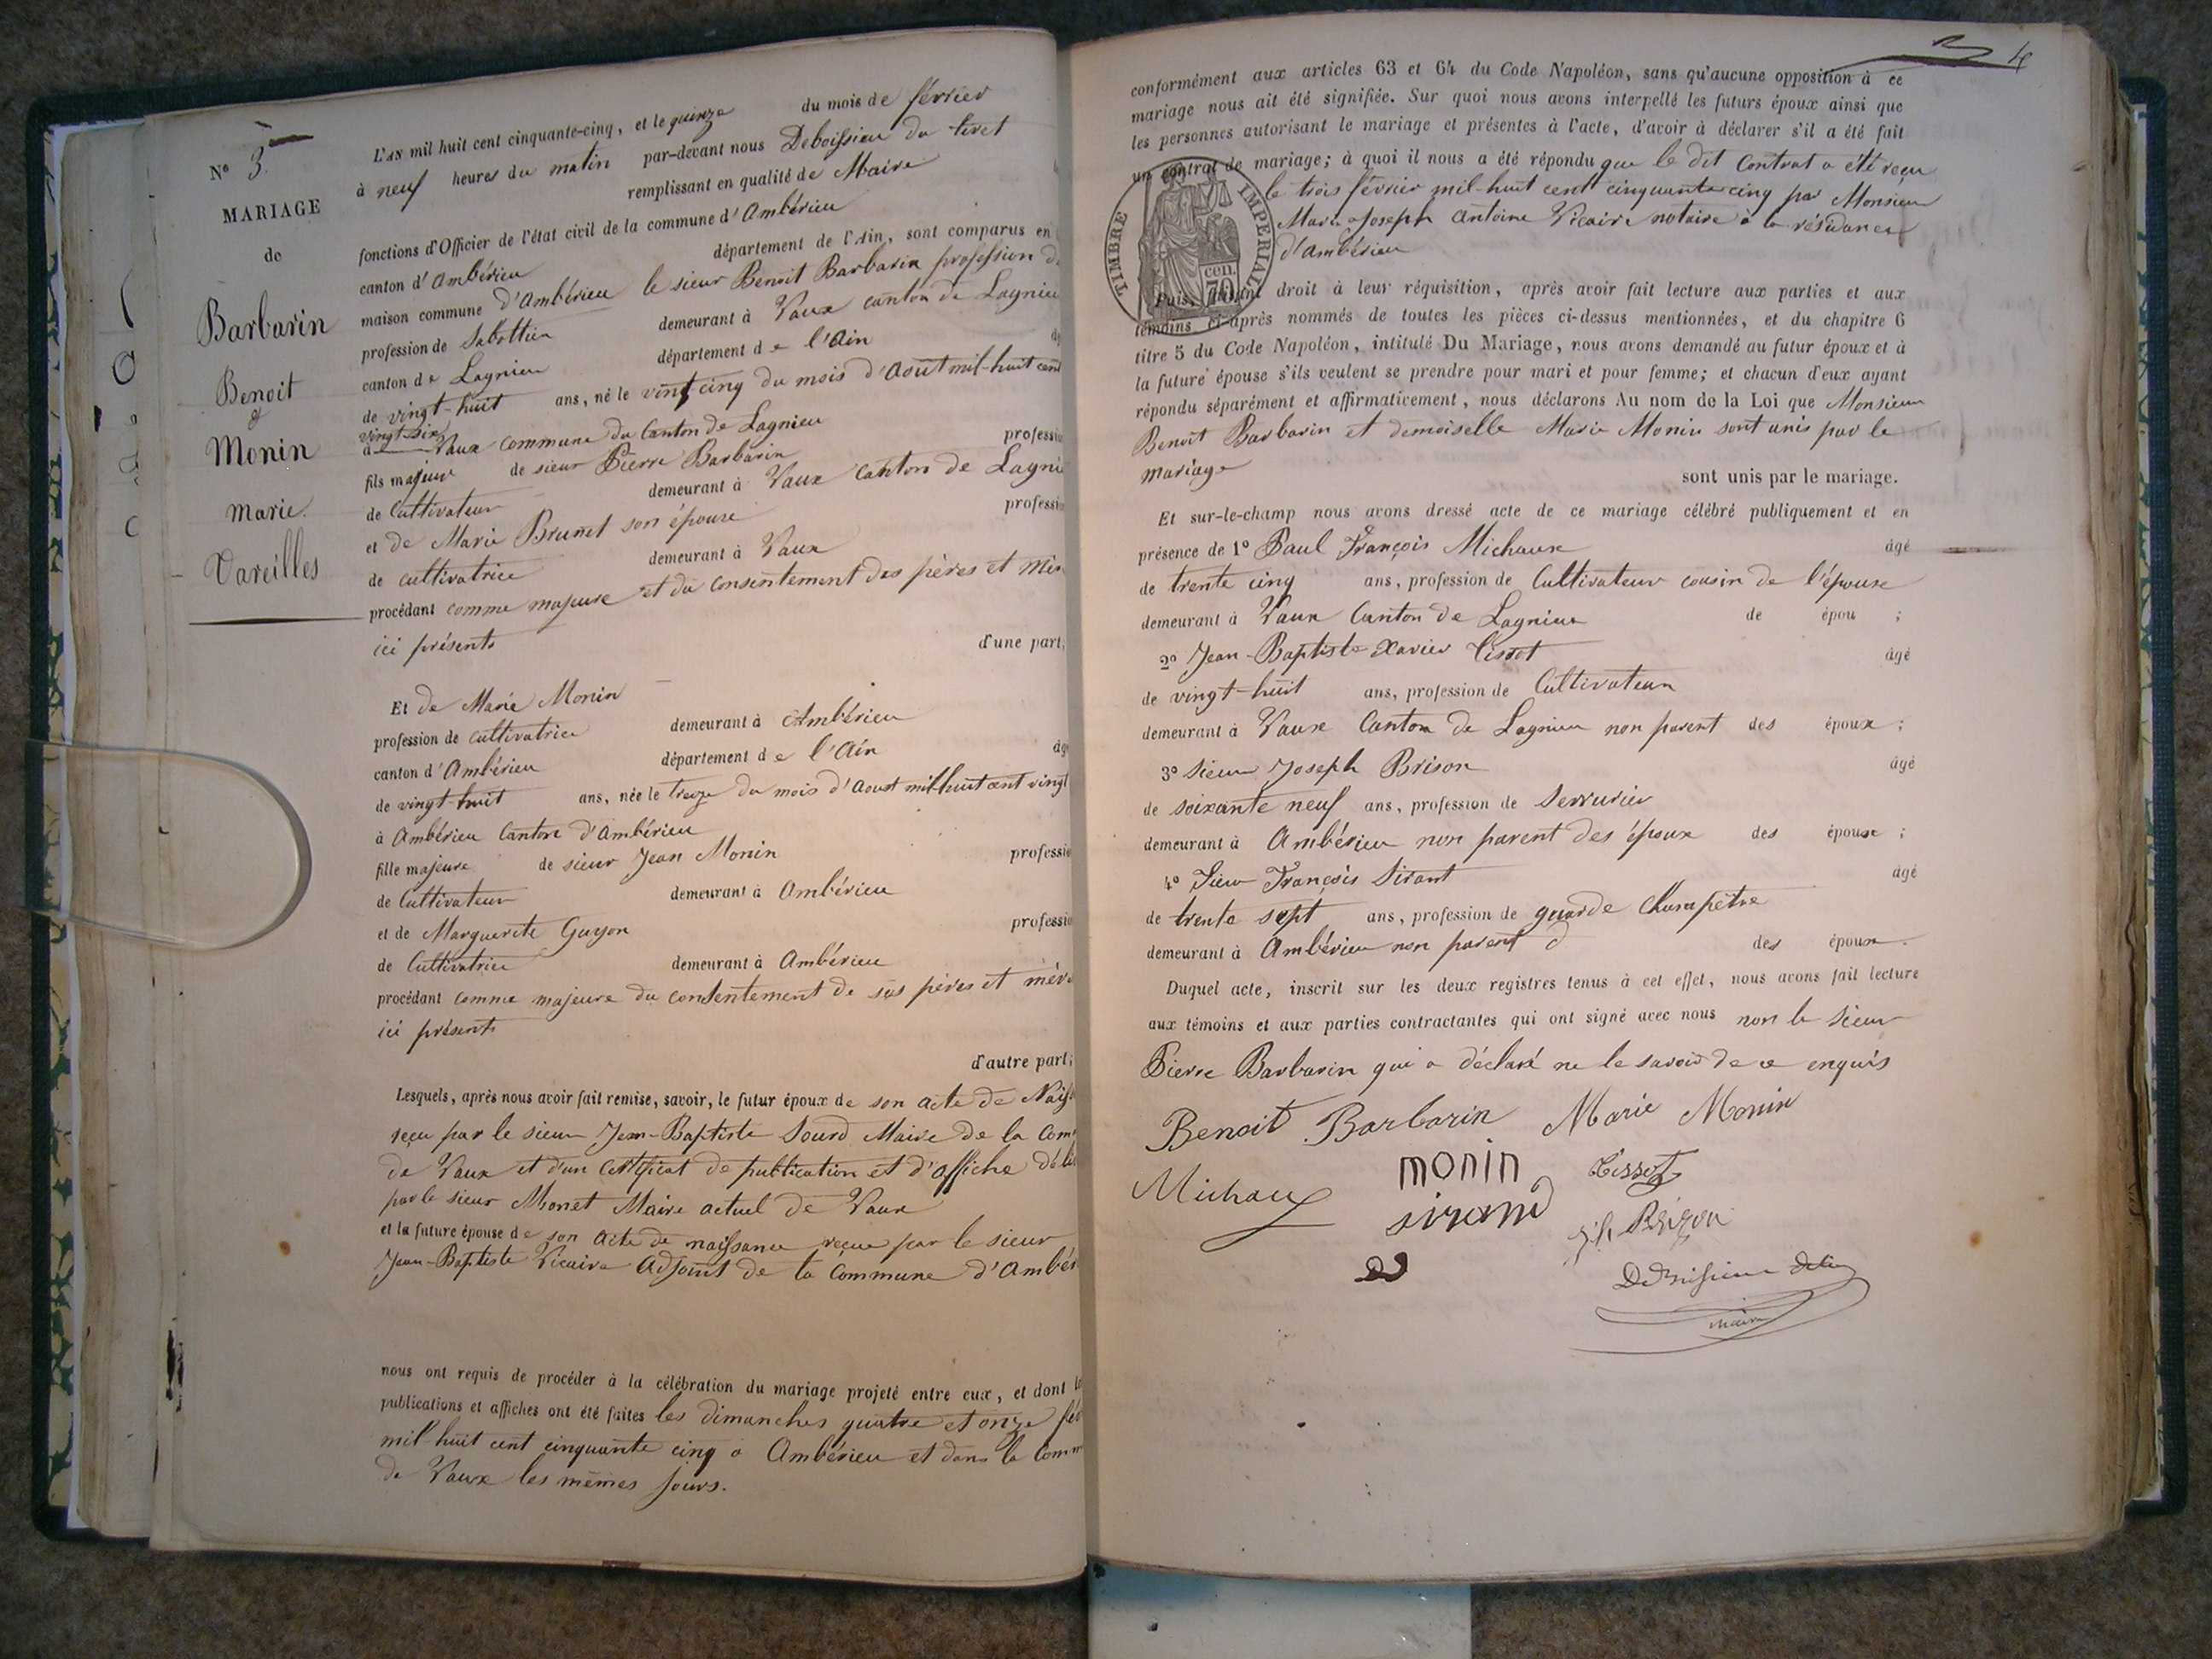 N° 3.
MARIAGE
de
Barbarin
Benoit
&
Monin
Marie
Vareilles
L'AN mil huit cent cinquante-cinq, et le quinze du mois de février
à neuf heures du matin par-devant nous Deboissieu du tiret
remplissant en qualité de Maire
fonctions d'Officier de l'état civil de la commune d'Ambérieu
canton d'Ambérieu département de l'Ain, sont comparus en
maison commune d'Ambérieu le sieur Benoit Barbarin profession de
profession de Sabottier demeurant à Vaux canton de Lagnieu
canton de Lagnieu département de l'Ain
de vingt-huit ans, né le vingt cinq du mois d'Août mil-huit cent
vingt-six
à Vaux commune du Canton de Lagnieu
fils majeur de sieur Pierre Barbarin professio
de Cultivateur demeurant à Vaux canton de Lagni
et de Marie Brunet son épouse professio
de cultivatrice demeurant à Vaux
procédant comme majeure et du consentement des pères et mèr
ici présents d'une part;
Et de Marie Monin
profession de cultivatrice demeurant à Ambérieu
canton d'Ambérieu département de l'Ain âg
de vingt-huit ans, née le treize du mois d'Aoust mil-huit cent vingt
à Ambérieu Canton d'Ambérieu
fille majeure de sieur Jean Monin professio
de Cultivateur demeurant à Ambérieu
et de Marguerite Guyon professio
de Cultivatrice demeurant à Ambérieu
procédant comme majeure du consentement de ses pères et mère
ici présents
d'autre part;
Lesquels, après nous avoir fait remise, savoir, le futur époux de son acte de Naiss
reçu par le sieur Jean-Baptiste Sourd Maire de la Com
de Vaux et d'un Certificat de publication et d'affiche déli
par le sieur Monet Maire actuel de Vaux
et la future épouse de son Acte de naissance reçue par le sieur
Jean-Baptiste Vicaire Adjoint de la Commune d'Ambér
nous ont requis de procéder à la célébration du mariage projeté entre eux, et dont le
publications et affiches ont été faites les dimanches quatre et onze fév
mil-huit cent cinquante cinq à Ambérieu et dans la Comm
de Vaux les mêmes jours.
4
conformément aux articles 63 et 64 du Code Napoléon, sans qu'aucune opposition à ce
mariage nous ait été signifiée. Sur quoi nous avons interpellé les futurs époux ainsi que
les personnes autorisant le mariage et présentes à l'acte, d'avoir à déclarer s'il a été fait
un contrat de mariage; à quoi il nous a été répondu que le dit Contrat a été reçu
le trois février mil-huit cent cinquante cinq par Monsieur
Marie Joseph Antoine Vicaire notaire à la résidance
d'Ambérieu
TIMBRE IMPÉRIAL
70 cen.
Puis, faisant droit à leur réquisition, après avoir fait lecture aux parties et aux
témoins ci-après nommés de toutes les pièces ci-dessus mentionnées, et du chapitre 6
titre 5 du Code Napoléon, intitulé Du Mariage, nous avons demandé au futur époux et à
la future épouse s'ils veulent se prendre pour mari et pour femme; et chacun d'eux ayant
répondu séparément et affirmativement, nous déclarons Au nom de la Loi que Monsieur
Benoit Barbarin et demoiselle Marie Monin sont unis par le
mariage
sont unis par le mariage.
Et sur-le-champ nous avons dressé acte de ce mariage célébré publiquement et en
présence de 1° Paul François Michaux âgé
de trente cinq ans, profession de Cultivateur cousin de l'épouse
demeurant à Vaux Canton de Lagnieu de épou ;
2° Jean-Baptiste Xavier Tissot âgé
de vingt-huit ans, profession de Cultivateur
demeurant à Vaux Canton de Lagnieu non parent des époux ;
3° Sieur Joseph Brison âgé
de soixante neuf ans, profession de Serrurier
demeurant à Ambérieu non parent des époux des épouse ;
4° Sieur François Sirant âgé
de trente sept ans, profession de guarde Champêtre
demeurant à Ambérieu non parent d des époux.
Duquel acte, inscrit sur les deux registres tenus à cet effet, nous avons fait lecture
aux témoins et aux parties contractantes qui ont signé avec nous non le Sieur
Pierre Barbarin qui a déclaré ne le savoir de ce enquis
Benoit Barbarin Marie Monin
Michaux monin Tissot
sirand
Deboissieu
maire